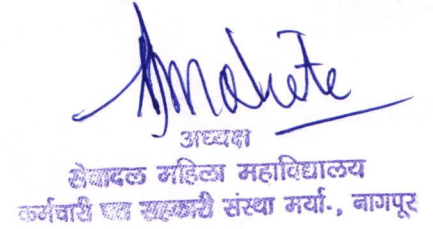 अध्यक्ष
सेवादल महिला महाविद्यालय
कर्मचारी पत सहकारी संस्था मर्या-, नागपूर